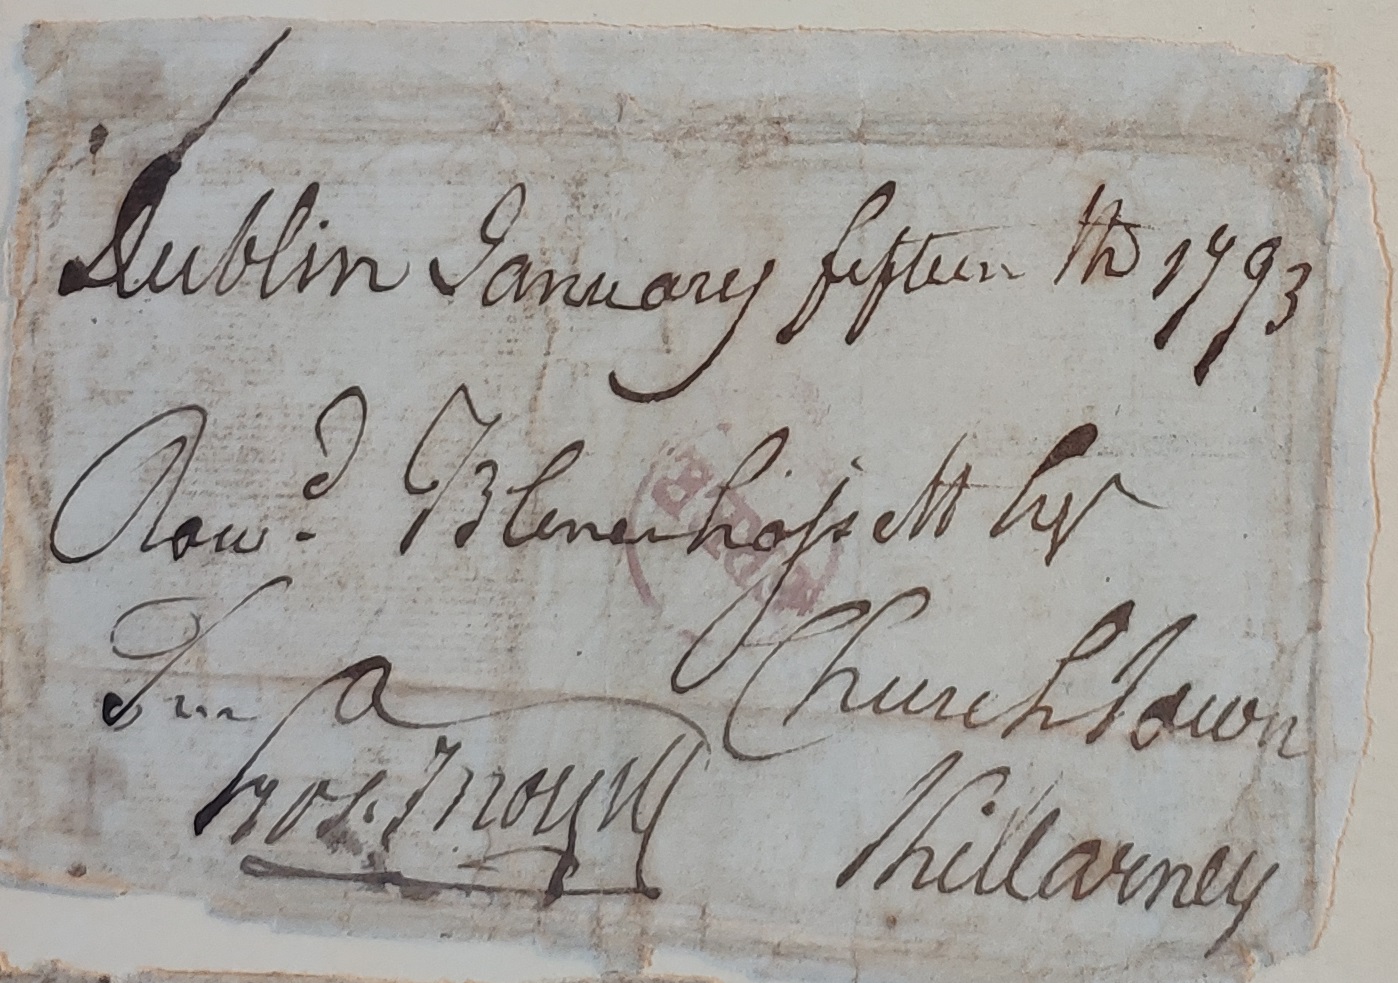 Dublin January fifteen th 1793
Row.d Blenerhassett Esqr
Churchtown
Killarney